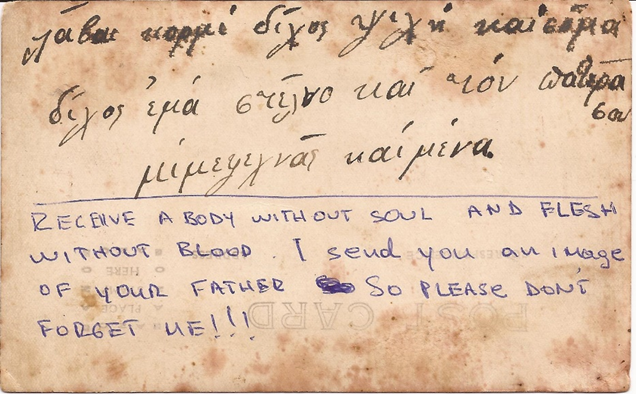 λάβαι κορμί δίχος ψιχή καί σόμα
δίχος ἐμά στέλνο καί τόν πατέρα
σα
μίμεψεχνᾶς καί μένα.
RECEIVE A BODY WITHOUT SOUL AND FLESH
WITHOUT BLOOD. I send you an image
OF YOUR FATHER SO PLEASE DON'T
FORGET ME!!!
POST CARD
PLACE
HERE